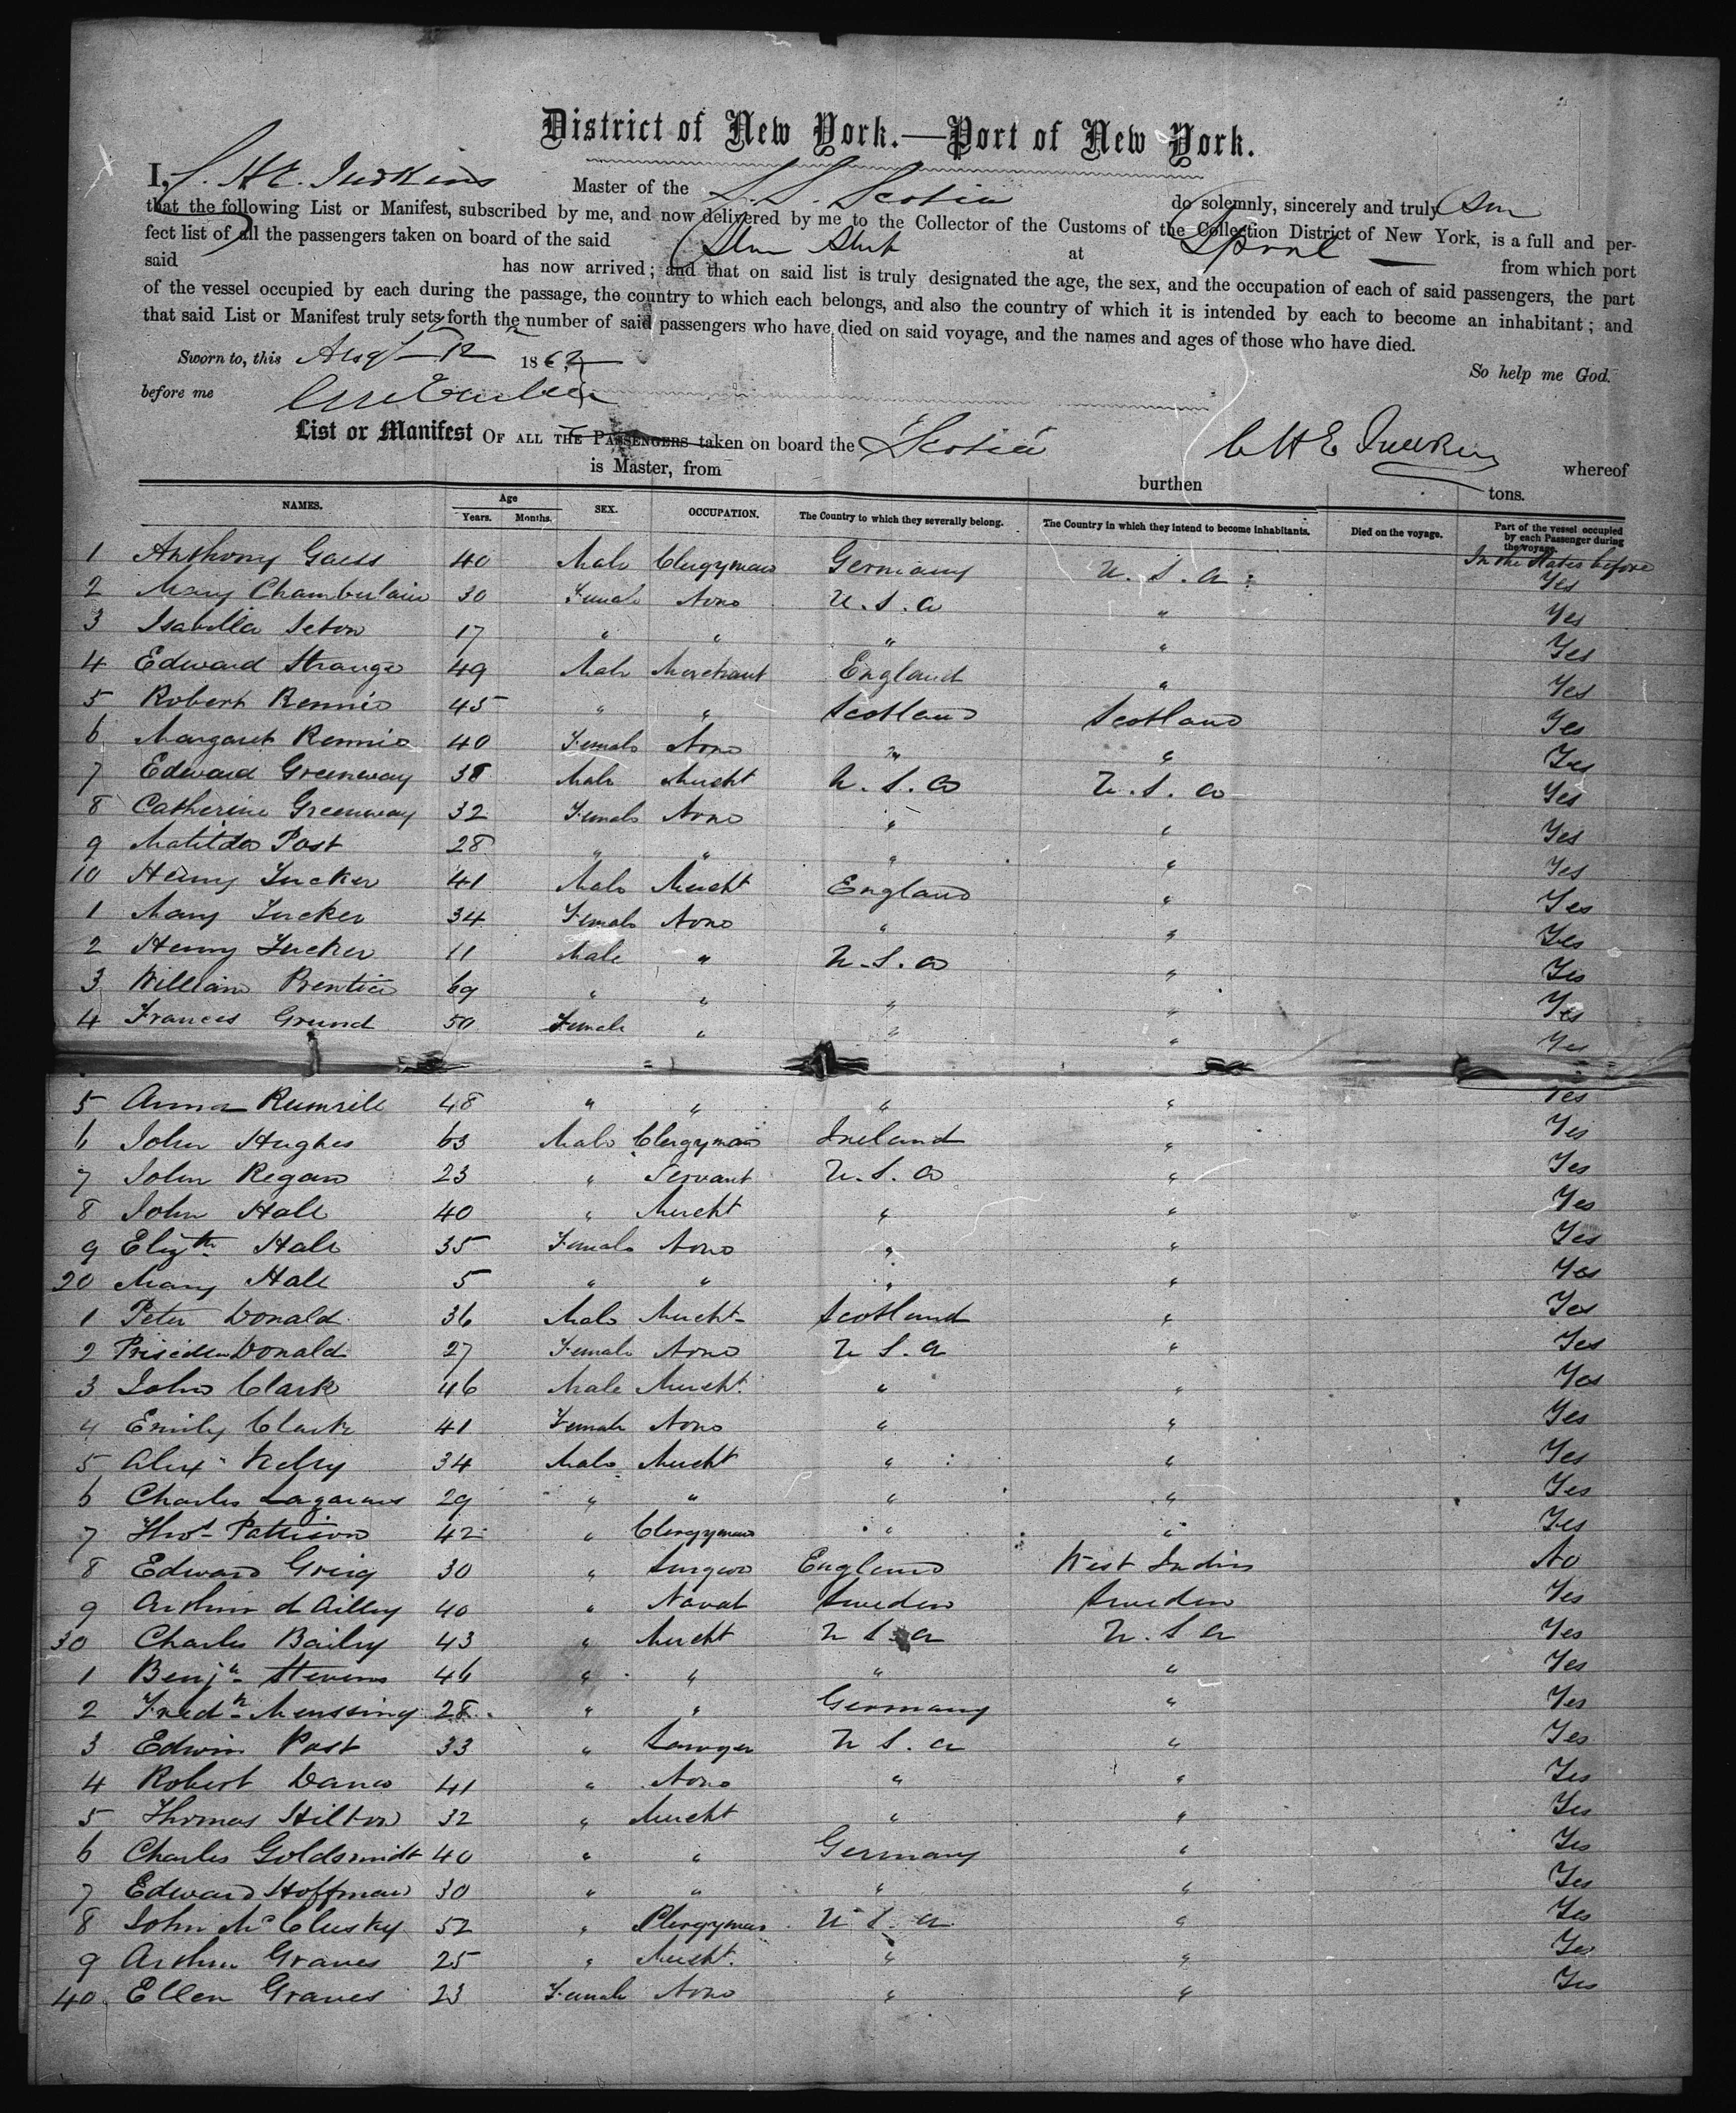 District of New York.—Port of New York.
I, C. H. E. Judkins Master of the S. S. Scotia do solemnly, sincerely and truly
that the following List or Manifest, subscribed by me, and now delivered by me to the Collector of the Customs of the Collection District of New York, is a full and per-
fect list of all the passengers taken on board of the said at Lpool from which port
said has now arrived; and that on said list is truly designated the age, the sex, and the occupation of each of said passengers, the part
of the vessel occupied by each during the passage, the country to which each belongs, and also the country of which it is intended by each to become an inhabitant; and
that said List or Manifest truly sets forth the number of said passengers who have died on said voyage, and the names and ages of those who have died.
So help me God.
Sworn to, this Augt 12 1862
before me
List or Manifest OF ALL THE PASSENGERS taken on board the Scotia C H E Judkins whereof
is Master, from burthen tons.
NAMES. Age Years. Months. SEX. OCCUPATION. The Country to which they severally belong. The Country in which they intend to become inhabitants. Died on the voyage. Part of the vessel occupied by each Passenger during the voyage.
In the States before
1 Anthony Gaess 40 Male Clergyman Germany U. S. A. Yes
2 Mary Chamberlain 30 Female None U. S. A " Yes
3 Isabella Seton 17 " " " " Yes
4 Edward Strange 49 Male Merchant England " Yes
5 Robert Rennie 45 " " Scotland Scotland Yes
6 Margaret Rennie 40 Female None " " Yes
7 Edward Greenway 38 Male Mercht U. S. A U. S. A Yes
8 Catherine Greenway 32 Female None " " Yes
9 Matilda Post 28 " " " " Yes
10 Henry Tucker 41 Male Mercht England " Yes
1 Mary Tucker 34 Female None " " Yes
2 Henry Tucker 11 Male " U. S. A " Yes
3 William Prentice 69 " " " " Yes
4 Frances Grund 50 Female " " " Yes
5 Anna Rumrill 48 " " " " Yes
6 John Hughes 63 Male Clergyman Ireland " Yes
7 John Regan 23 " Servant U. S. A " Yes
8 John Hall 40 " Mercht " " Yes
9 Elizth Hall 35 Female None " " Yes
20 Mary Hall 5 " " " " Yes
1 Peter Donald 36 Male Mercht Scotland " Yes
2 Donald 27 Female None U S. A " Yes
3 John Clark 46 Male Mercht " " Yes
4 Emily Clark 41 Female None " " Yes
5 Alexr Kelsy 34 Male Mercht " " Yes
6 Charles Lazarus 29 " " " " Yes
7 Thos Pattison 42 " Clergyman " " Yes
8 Edward Greig 30 " Surgeon England West Indies No
9 Arthur d'Ailly 40 " Naval Sweden Sweden Yes
30 Charles Baily 43 " Mercht U S A U. S A Yes
1 Benjn Stevens 46 " " " " Yes
2 Fredk Meussing 28 " " Germany " Yes
3 Edwin Post 33 " Lawyer U S. A " Yes
4 Robert 41 " None " " Yes
5 Thomas Hilton 32 " Mercht " " Yes
6 Charles Goldsmidt 40 " " Germany " Yes
7 Edward Hoffman 30 " " " " Yes
8 John McClusky 52 " Clergyman U. S. A " Yes
9 Arthur Graves 25 " Mercht. " " Yes
40 Ellen Graves 23 Female None " " Yes